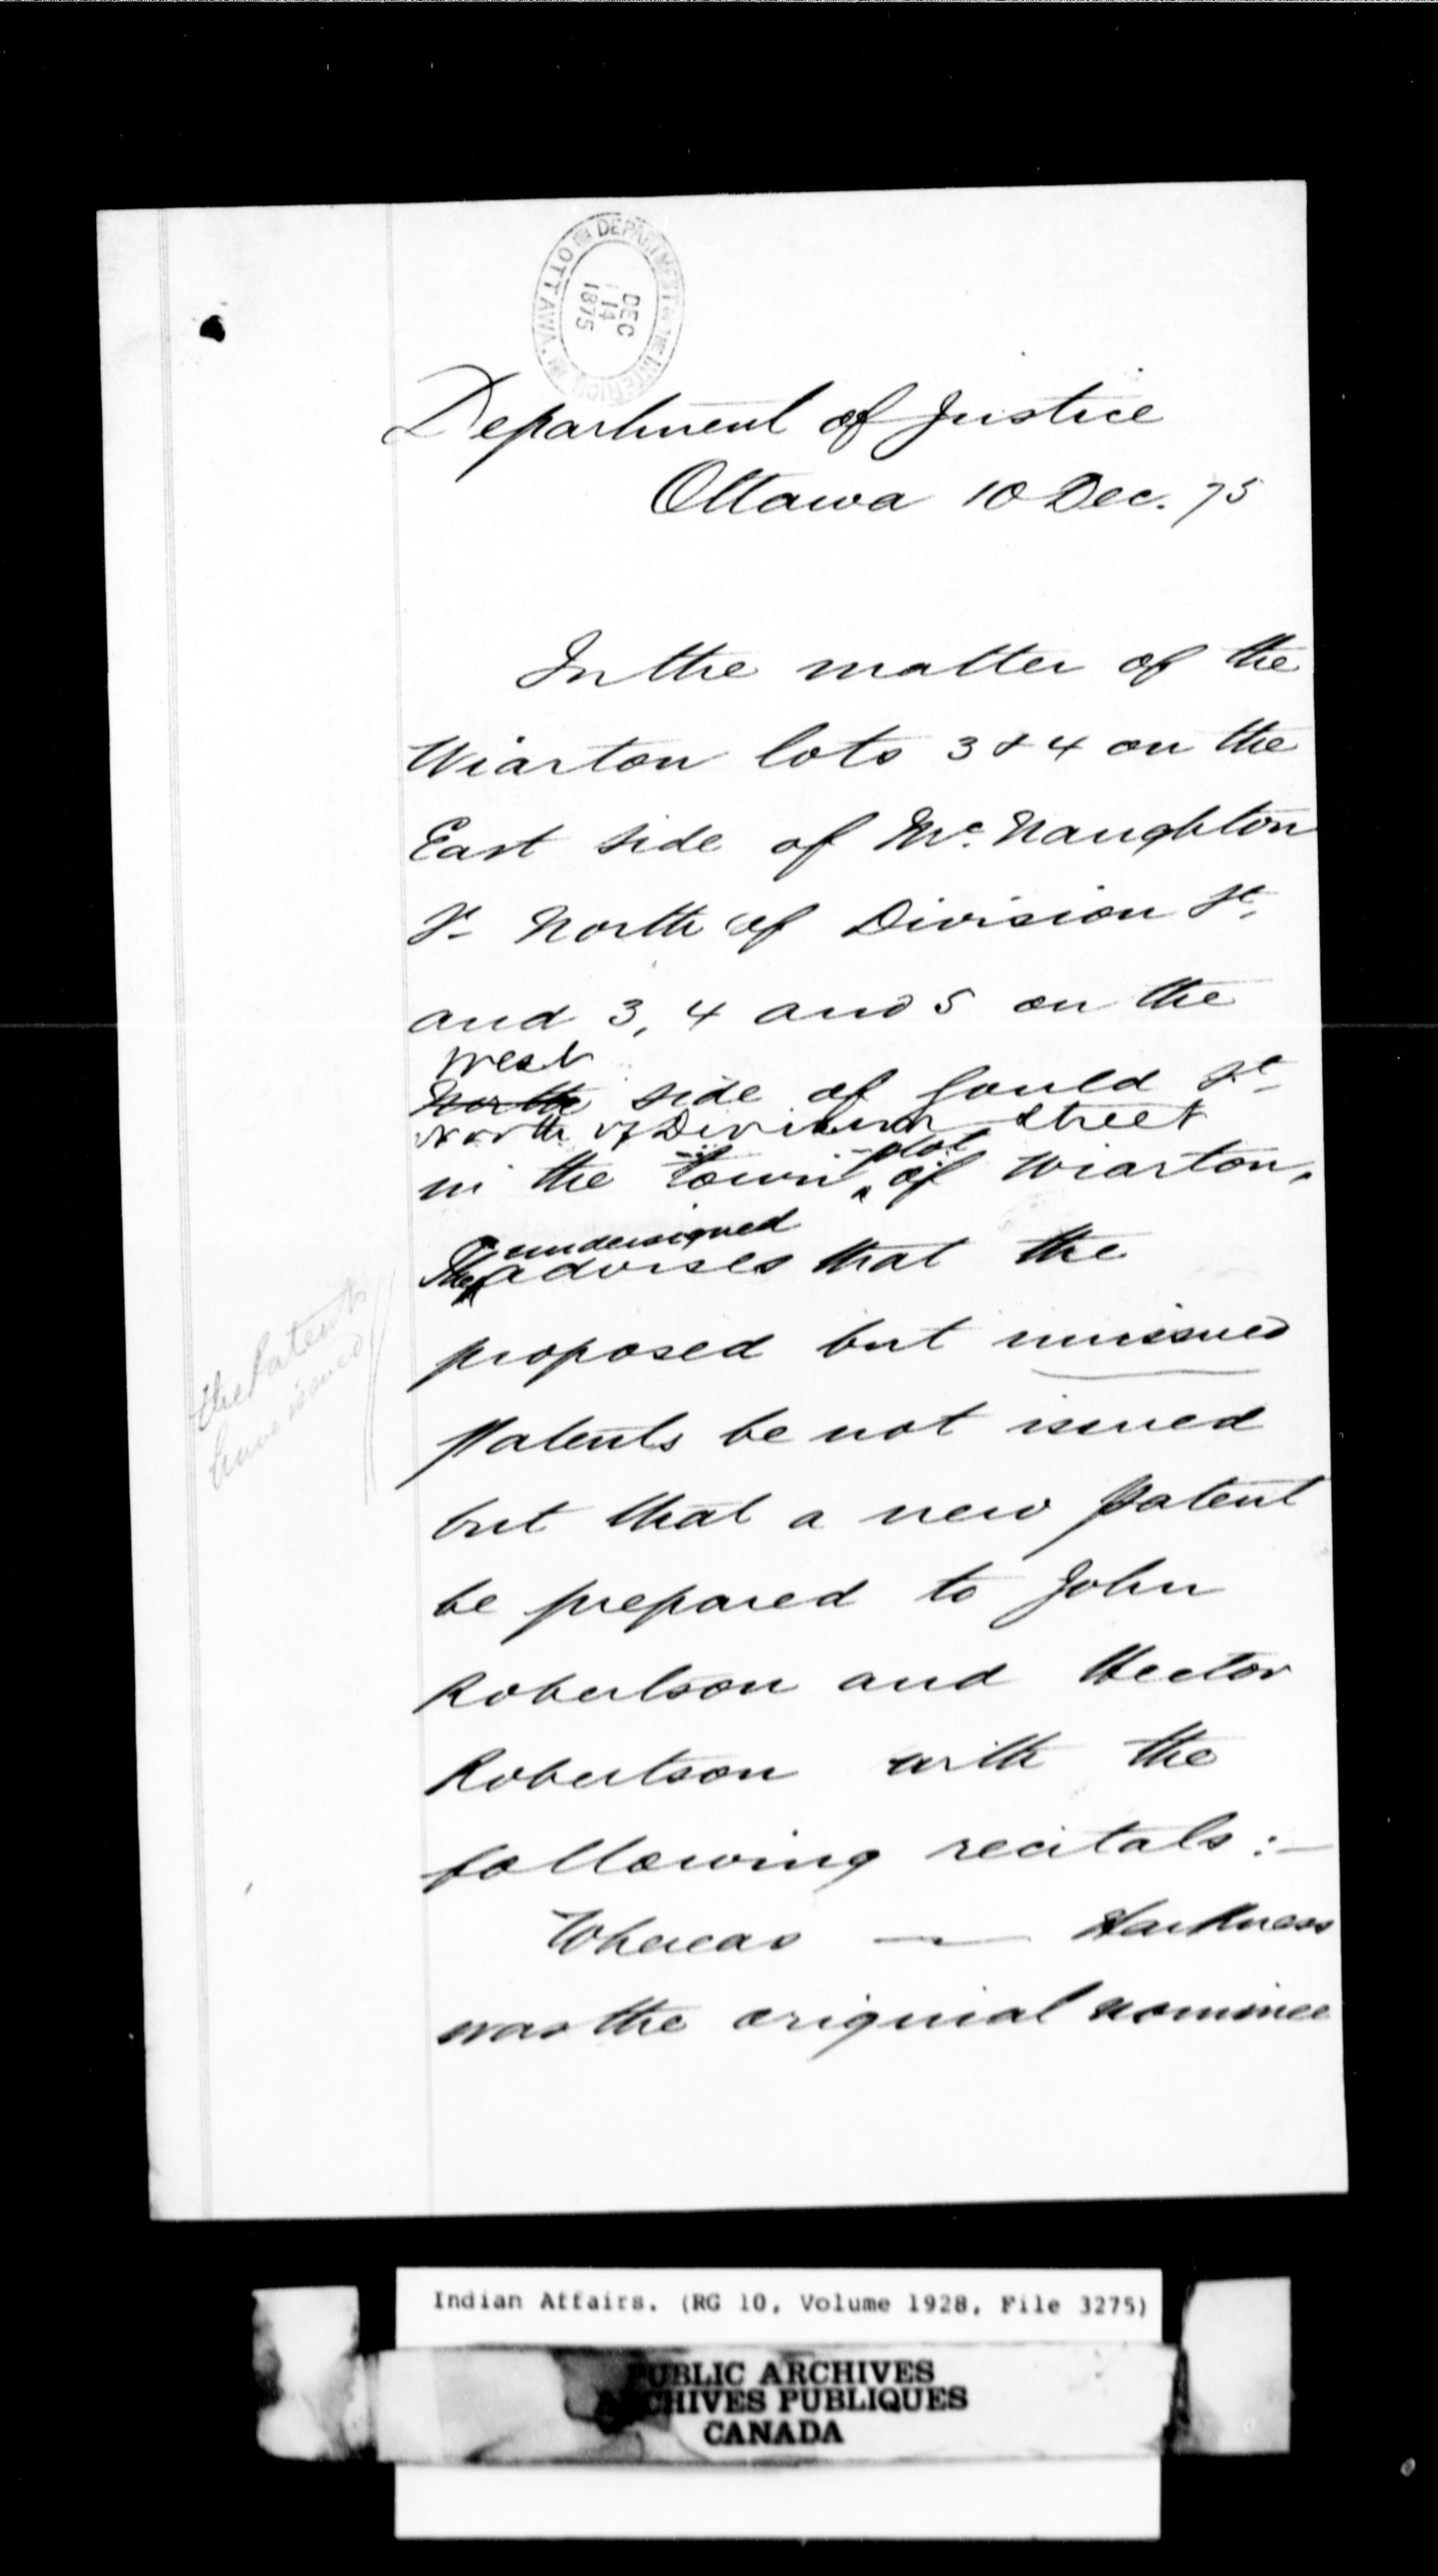 DEPARTMENT OF THE INTERIOR
OTTAWA.
DEC
14
1875
Department of Justice
Ottawa 10 Dec. 75
In the matter of the
Wiarton lots 3 & 4 on the
East side of Mc. Naughton
St. North of Division St.
and 3, 4 and 5 on the
West
North side of Gould St.
North of Division Street
plot
in the town of Wiarton,
undersigned
The advises that the
proposed but unissued
the Patents
have issued
Patents be not issued
but that a new patent
be prepared to John
Robertson and Hector
Robertson with the
following recitals :—
Whereas — Harkness
was the original nominee
Indian Affairs. (RG 10, Volume 1928, File 3275)
PUBLIC ARCHIVES
ARCHIVES PUBLIQUES
CANADA